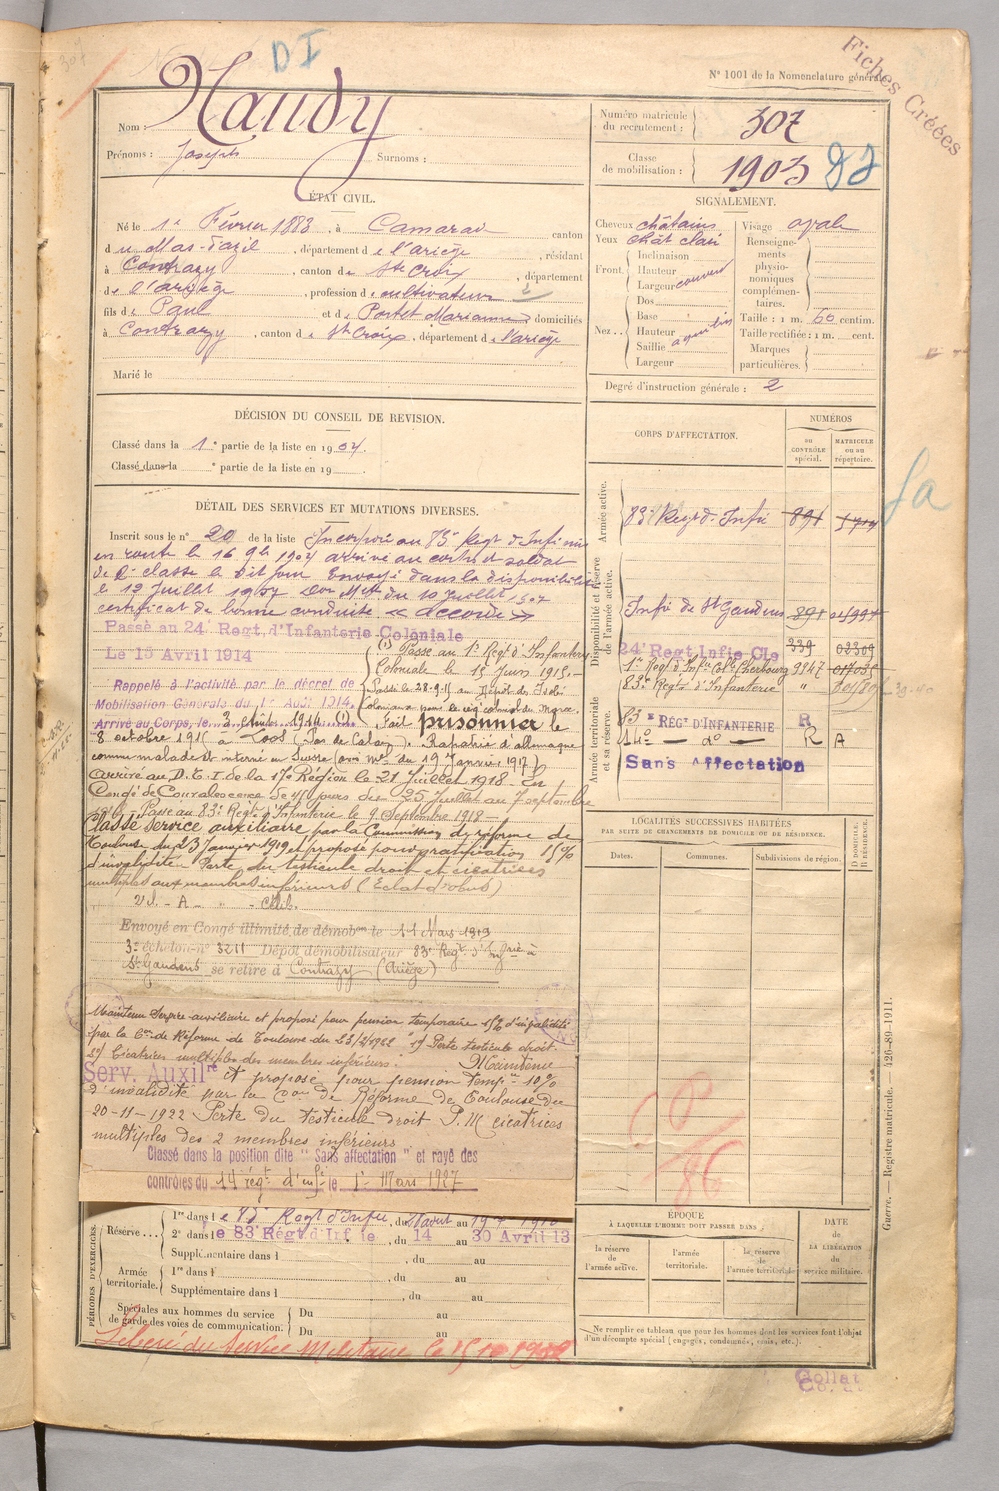 307
D I
N° 1001 de la Nomenclature générale.
Fiches Créées
Nom : Naudy
Prénoms : Joseph Surnoms :
Numéro matricule du recrutement : 307
Classe de mobilisation : 1903
ÉTAT CIVIL.
Né le 1er Février 1883, à Camarade canton
du Mas-d'azil, département de l'ariège, résidant
à Contrazy, canton de Ste Croix, département
de l'ariège, profession de cultivateur
fils de Paul et de Portet Marianne domiciliés
à Contrazy, canton de Ste Croix, département de l'ariège
Marié le
SIGNALEMENT.
Cheveux châtains
Yeux chât clair
Front. Inclinaison
Hauteur
Largeur couvert
Nez.. Dos
Base
Hauteur aquilin
Saillie
Largeur
Visage ovale
Renseignements physionomiques complémentaires.
Taille : 1 m. 60 centim.
Taille rectifiée : 1 m. cent.
Marques particulières.
Degré d'instruction générale : 2
DÉCISION DU CONSEIL DE REVISION.
Classé dans la 1e partie de la liste en 1904.
Classé dans la e partie de la liste en 19
CORPS D'AFFECTATION.
NUMÉROS
au CONTRÔLE spécial.
MATRICULE ou au répertoire.
Armée active.
83e Regt d'Infie 891
Disponibilité et réserve de l'armée active.
Infie de St Gaudens 891
24e Regt Infie Cle 339 02309
1er Regt d'Infie Colle Cherbourg 9347
83e Regt d'Infanterie "
Armée territoriale et sa réserve.
83e RÉGt D'INFANTERIE R
14e — do — R A
Sans Affectation
fa
DÉTAIL DES SERVICES ET MUTATIONS DIVERSES.
Inscrit sous le n° 20 de la liste Incorporé au 83e Regt d'Infie mis
en route le 16 9bre 1904 arrivé au corps et soldat
de 2e classe le dit jour Envoyé dans la disponibilité
le 12 Juillet 1907 Don Mlle du 10 Juillet 1907
certificat de bonne conduite « accordé »
Passé au 24e Regt. d'Infanterie Coloniale
Le 15 Avril 1914
(1) Passé au 1er Regt d'Infanterie
Coloniale le 15 Juin 1915.
Rappelé à l'activité par le décret de
Mobilisation Générale du 1er Août 1914.
Arrivé au Corps, le 3 Août 1914. (1).
Passé le 28.9.15 au Dépôt des Isolés
Coloniaux pour le régt colonial du Maroc.
Fait prisonnier le
8 octobre 1915 à Loos (Pas de Calais). Rapatrié d'allemagne
comme malade et interné en Suisse (avis Mel du 19 Janvier 1917)
Arrivé au D.E.I. de la 17e Région le 21 Juillet 1918. En
Congé de Convalescence de 45 jours du 25 Juillet au 7 septembre
1918. Passé au 83e Regt d'Infanterie le 9 Septembre 1918 —
Classé Service auxiliaire par la Commission de réforme de
Toulouse du 23 Janvier 1919 et proposé pour gratification 15%
d'invalidité. Perte du testicule droit et cicatrices
multiples aux membres inférieurs (Eclat d'obus)
Envoyé en Congé illimité de démobon le 11 Mars 1919
3e échelon n° 3211 Dépôt démobilisateur 83e Regt d'Infrie à
St Gaudens se retire à Contrazy (Ariège)
Maintenu Service auxiliaire et proposé pour pension temporaire 15% d'invalidité
par la Con de Réforme de Toulouse du 23/2/1922 1° Perte testicule droit.
2° Cicatrices multiples des membres inférieurs. Maintenu
Serv. Auxilre et proposé pour pension tempre 10%
d'invalidité par la Con de Réforme de Toulouse du
20-11-1922 Perte du testicule droit P.M cicatrices
multiples des 2 membres inférieurs
Classé dans la position dite "Sans affectation" et rayé des
contrôles du 14e régt d'infie le 1er Mars 1927
LOCALITÉS SUCCESSIVES HABITÉES
PAR SUITE DE CHANGEMENTS DE DOMICILE OU DE RÉSIDENCE.
D. DOMICILE. R. RÉSIDENCE.
Dates. Communes. Subdivisions de région.
86
PÉRIODES D'EXERCICES.
Réserve... 1re dans le 83e Regt d'Infie, du août au 1910
2e dans le 83e Régt d'Inf ie, du 14 au 30 Avril 13
Supplémentaire dans l , du au
Armée territoriale. 1re dans l , du au
Supplémentaire dans l , du au
Spéciales aux hommes du service de garde des voies de communication. Du au
Du au
Libéré du service militaire le 15
ÉPOQUE
À LAQUELLE L'HOMME DOIT PASSER DANS :
la réserve de l'armée active.
l'armée territoriale.
la réserve de l'armée territoriale
DATE de LA LIBÉRATION du service militaire.
Ne remplir ce tableau que pour les hommes dont les services font l'objet
d'un décompte spécial (engagés, condamnés, omis, etc.).
Guerre. — Registre matricule. — 426-89-1911.
Collat